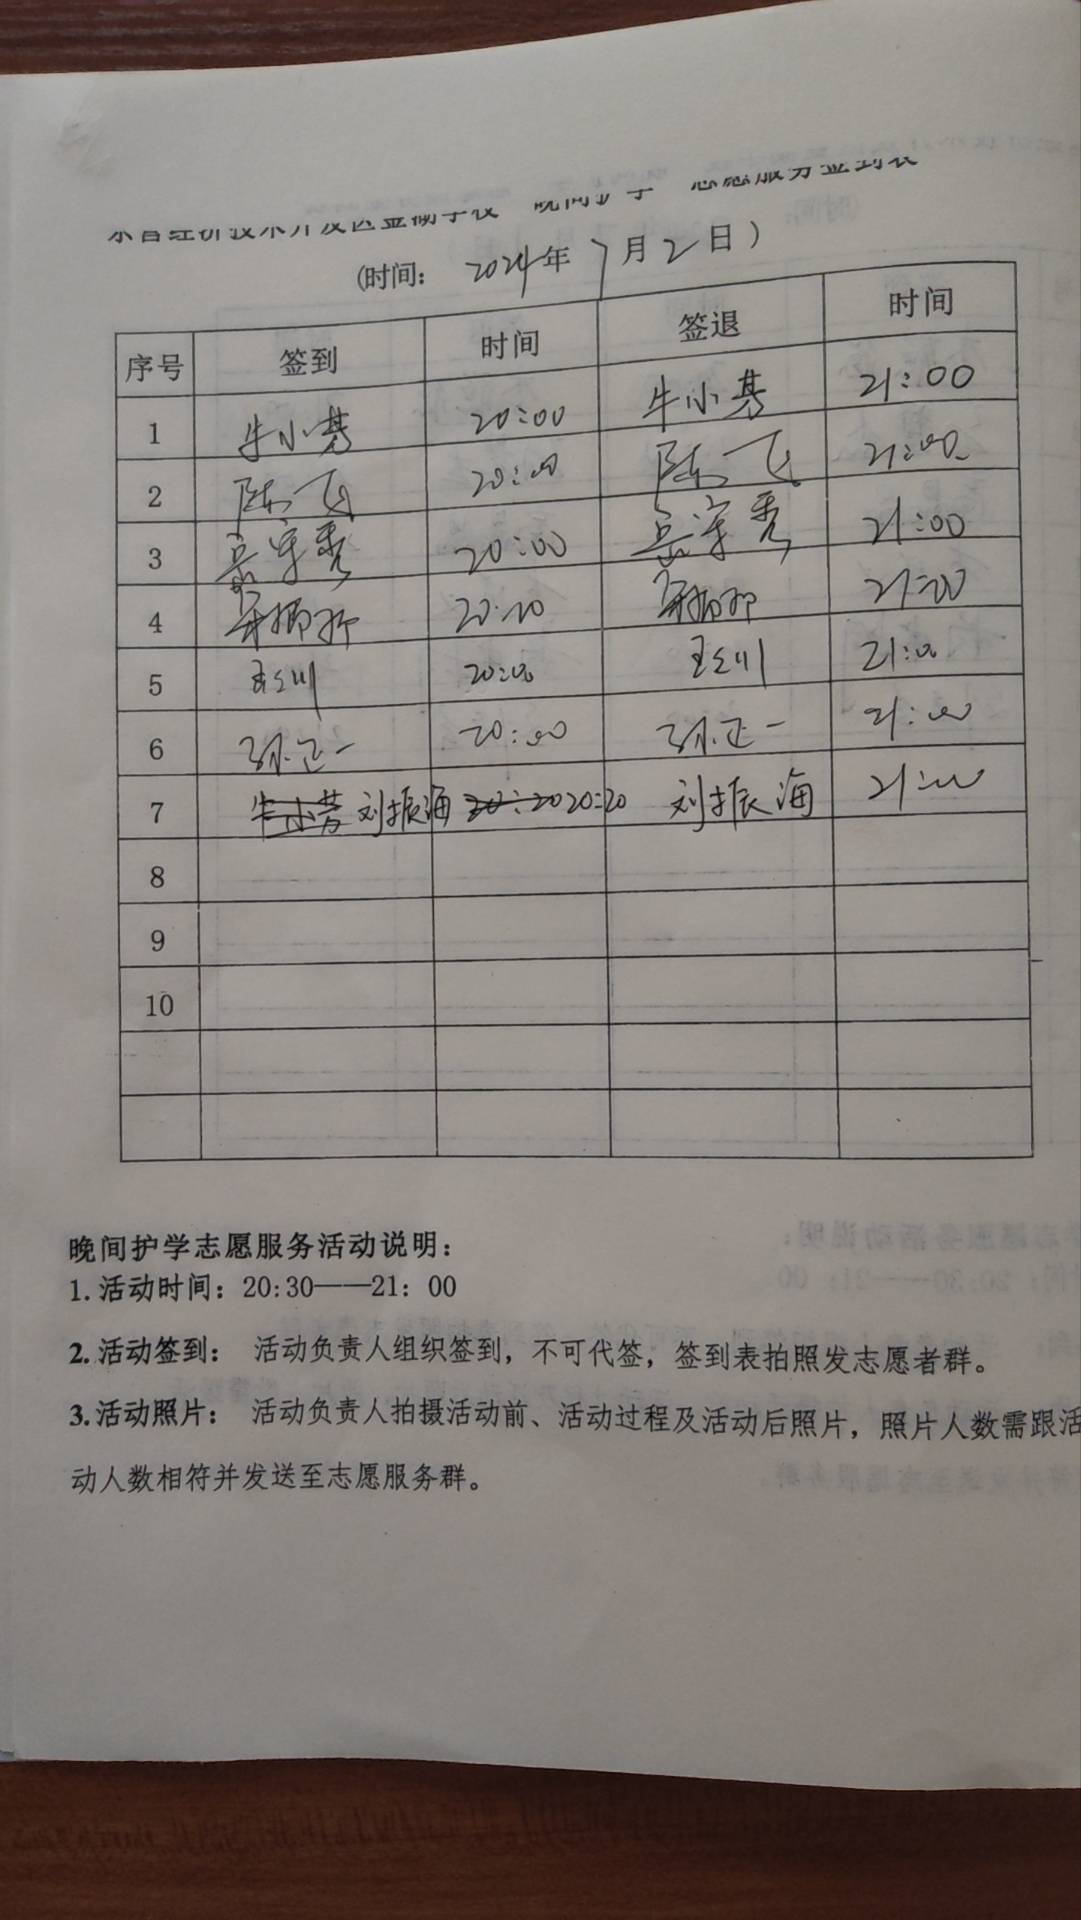 晚间护学 志愿服务签到表
(时间： 2024年 7月2日)
序号 签到 时间 签退 时间
1 牛小芳 20:00 牛小芳 21:00
2 陈飞 20:00 陈飞 21:00
3 20:00 21:00
4 21:00
5 20:00 21:00
6 孙正一 20:00 孙正一 21:00
7 牛小芳 刘振海 20:20 20:20 刘振海 21:00
8
9
10
晚间护学志愿服务活动说明：
1.活动时间：20:30——21：00
2.活动签到： 活动负责人组织签到，不可代签，签到表拍照发志愿者群。
3.活动照片： 活动负责人拍摄活动前、活动过程及活动后照片，照片人数需跟活
动人数相符并发送至志愿服务群。